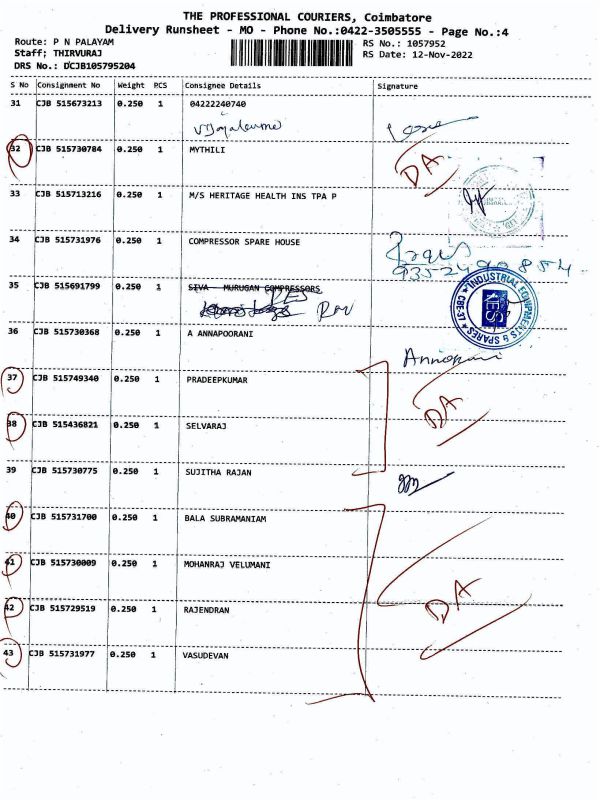 THE PROFESSIONAL COURIERS, Coimbatore
Delivery Runsheet - MO - Phone No.:0422-3505555 - Page No.:4
Route: P N PALAYAM RS No.: 1057952
Staff; THIRVURAJ RS Date: 12-Nov-2022
DRS No.: DCJB105795204
S No Consignment No Weight PCS Consignee Details Signature
31 CJB 515673213 0.250 1 04222240740
32 CJB 515730784 0.250 1 MYTHILI
DA
33 CJB 515713216 0.250 1 M/S HERITAGE HEALTH INS TPA P
34 CJB 515731976 0.250 1 COMPRESSOR SPARE HOUSE
35 CJB 515691799 0.250 1 SIVA MURUGAN COMPRESSORS
INDUSTRIAL EQUIPMENTS & SPARES
36 CJB 515730368 0.250 1 A ANNAPOORANI
37 CJB 515749340 0.250 1 PRADEEPKUMAR
DA
38 CJB 515436821 0.250 1 SELVARAJ
39 CJB 515730775 0.250 1 SUJITHA RAJAN
40 CJB 515731700 0.250 1 BALA SUBRAMANIAM
41 CJB 515730009 0.250 1 MOHANRAJ VELUMANI
42 CJB 515729519 0.250 1 RAJENDRAN
DA
43 CJB 515731977 0.250 1 VASUDEVAN